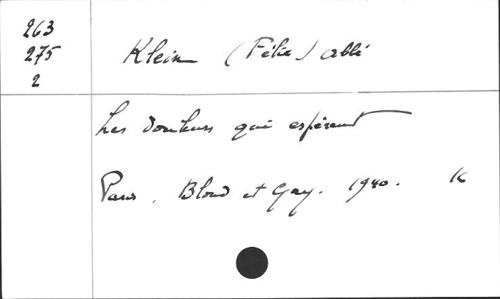 263
275
2
Klein (Félix) abbé
Les douleurs qui espèrent
Paris. Bloud et Gay. 1940. 16